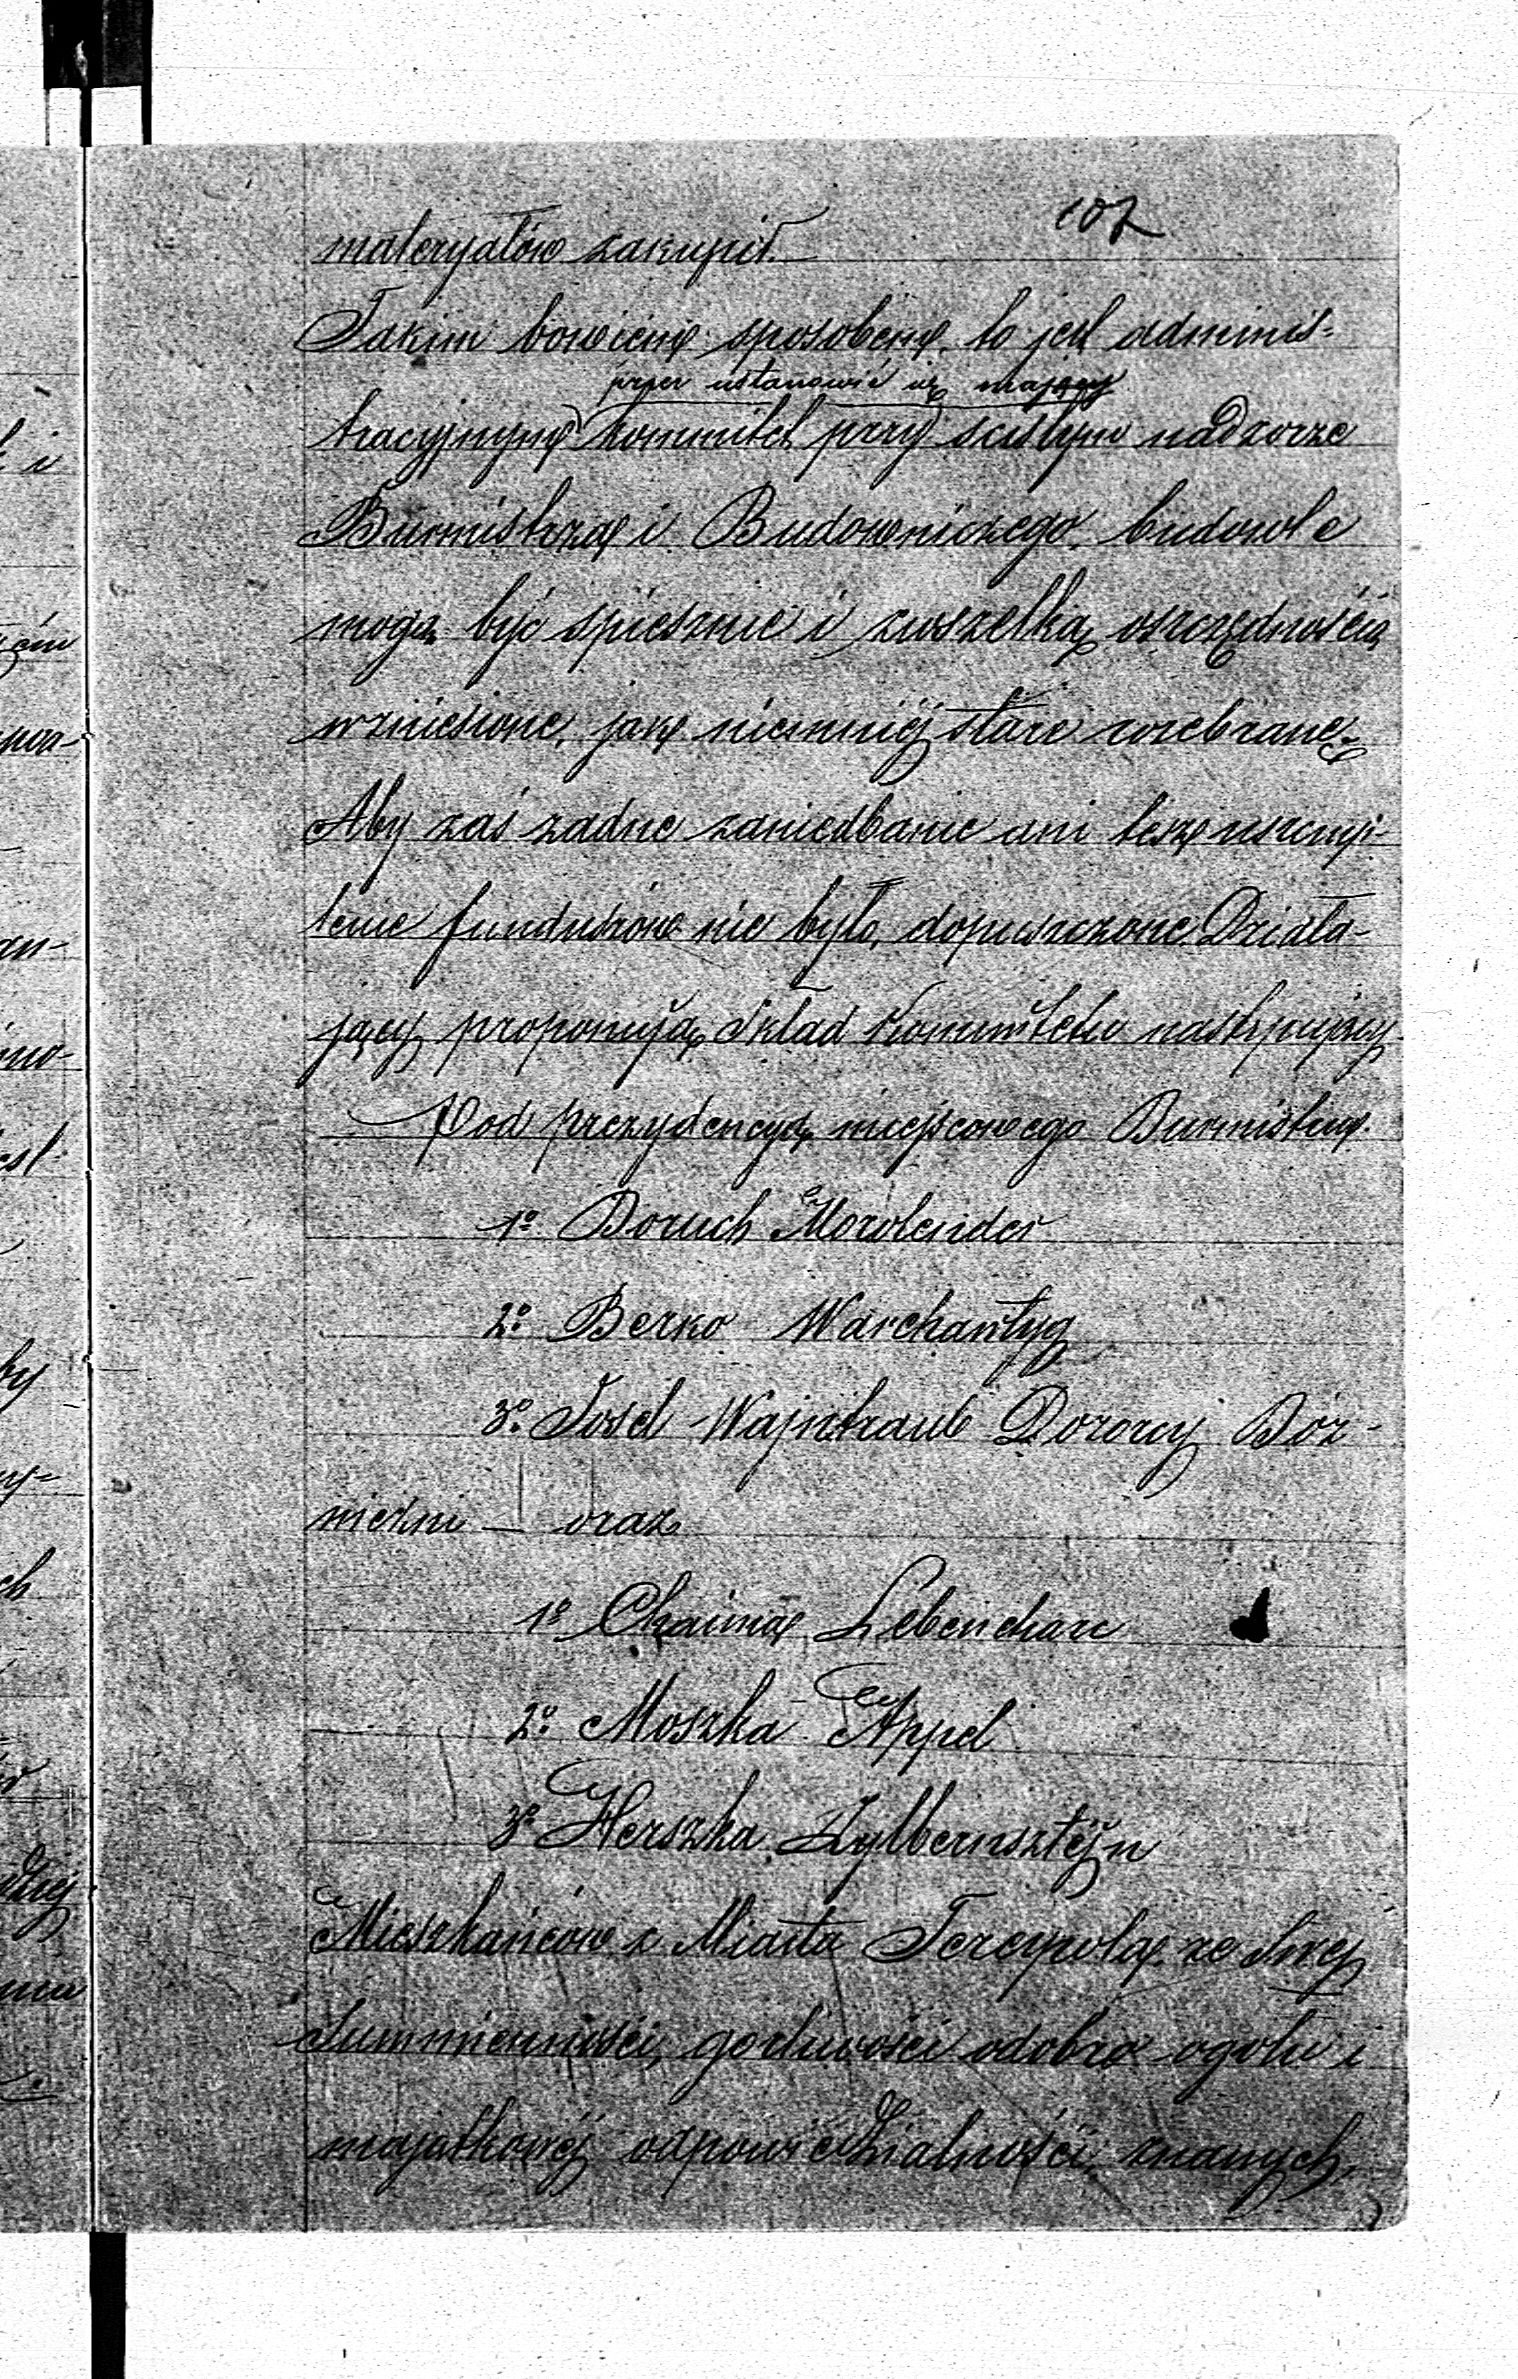 107
materyałów zakupił. —
Takim bowiem sposobem, to jest adminis=
przez ustanowić się mający
tracyjnym kommitet przy scisłym nadzorze
Burmistrza i Budowniczego, budowle
mogą być spiesznie i zwszelką oszczędnością
wzniesione, jak niemniéj stare rozebrane.
Aby zaś żadne zaniedbanie ani też uszczu-
lenie funduszów nie było, dopuszczone. Działa-
jący proponują Skład Kommitetu następujący
Pod prezydencyą miejscowego Burmistrza
1o Boruch Morolender
2o Berko
3o Josel Wajntraub Dozorcy Boż-
niczni — oraz
1o Chaima
2o Moszka Appel
3o Herszka Zylbersztejn
Mieszkańców z Miasta Terespola, ze swej
Summienności, gorliwości o dobro ogołu i
majątkowéj odpowiedzialności, znanych,